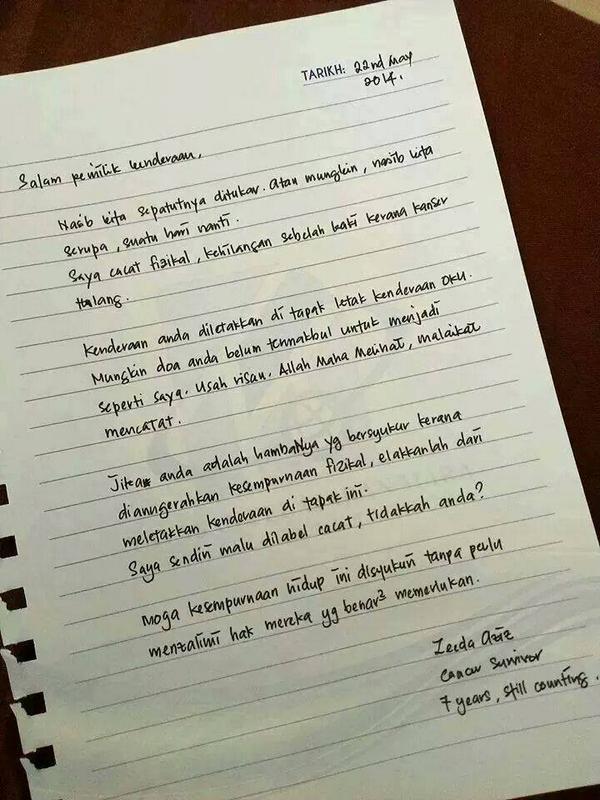 TARIKH: 22nd May
2014.
Salam pemilik kenderaan,
Nasib kita sepatutnya ditukar. Atau mungkin, nasib kita
serupa, suatu hari nanti.
Saya cacat fizikal, kehilangan sebelah kaki kerana kanser
tulang.
Kenderaan anda diletakkan di tapak letak kenderaan OKU.
Mungkin doa anda belum termakbul untuk menjadi
seperti saya. Usah risau. Allah Maha Melihat, malaikat
mencatat.
Jika anda adalah hambaNya yg bersyukur kerana
dianugerahkan kesempurnaan fizikal, elakkanlah dari
meletakkan kenderaan di tapak ini.
Saya sendiri malu dilabel cacat, tidakkah anda?
Moga kesempurnaan hidup ini disyukuri tanpa perlu
menzalimi hak mereka yg benar² memerlukan.
Zeeda Aziz
Cancer Survivor
7 years, still counting.